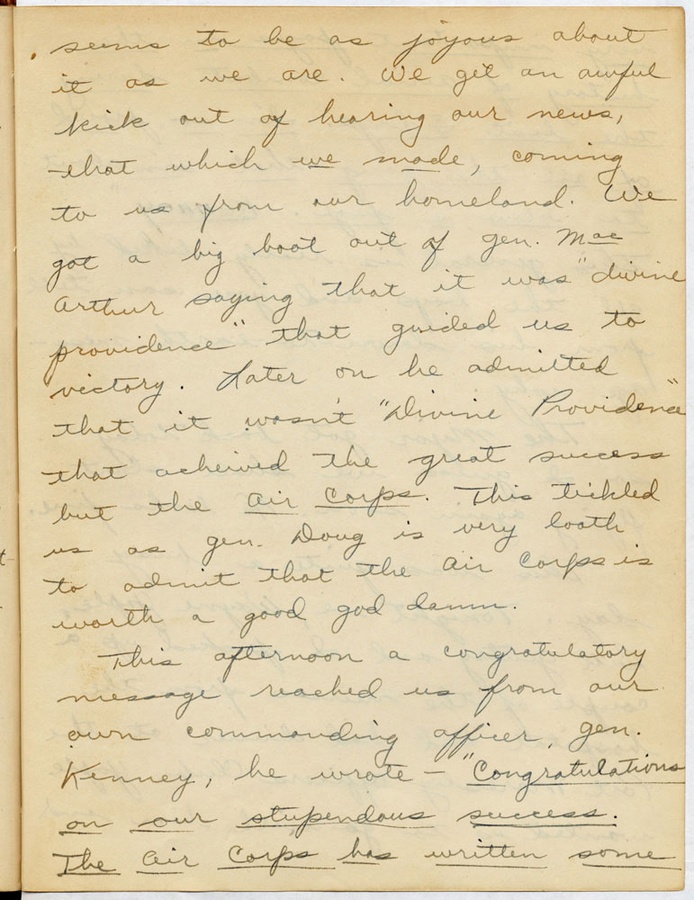 seems to be as joyous about
it as we are. We get an awful
kick out of hearing our news,
that which we made, coming
to us from our homeland. We
got a big boot out of gen. Mac
Arthur saying that it was "divine
providence" that guided us to
victory. Later on he admitted
that it wasn't "Divine Providence"
that acheived the great success
but the Air Corps. This tickled
us as gen. Doug is very loath
to admit that the Air Corps is
worth a good god damn.
This afternoon a congratulatory
message reached us from our
own commanding officer, gen.
Kenney, he wrote - "Congratulations
on our stupendous success.
The Air Corps has written some